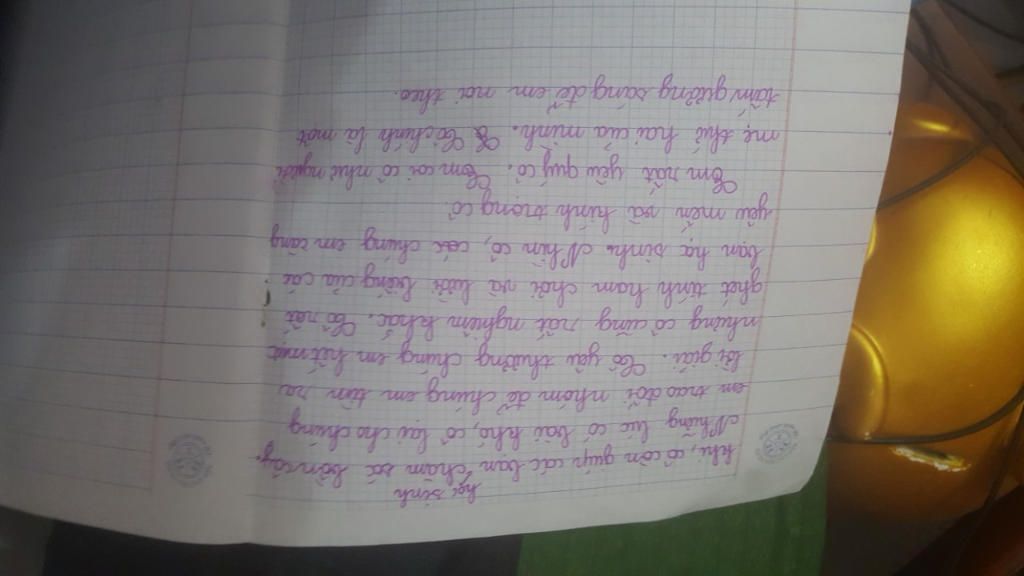 học sinh
khi, cô còn giúp các bạn chăm sá bồn cây.
Những lúc có bài khó, cô lại cho chúng
em trao đổi nhóm để chúng em tìm ra
lời giải. Cô yêu thương chúng em hết mực
nhưng cô cũng rất nghiêm khắc. Cô rất
ghét tính ham chơi và lười biếng của các
bạn học sinh. Nhìn cô, các chúng em càng
yêu mến và kính trọng cô.
Em rất yêu quý cô. Em coi cô như người
mẹ thứ hai của mình. Cô chính là một
tấm gương sáng để em noi theo.